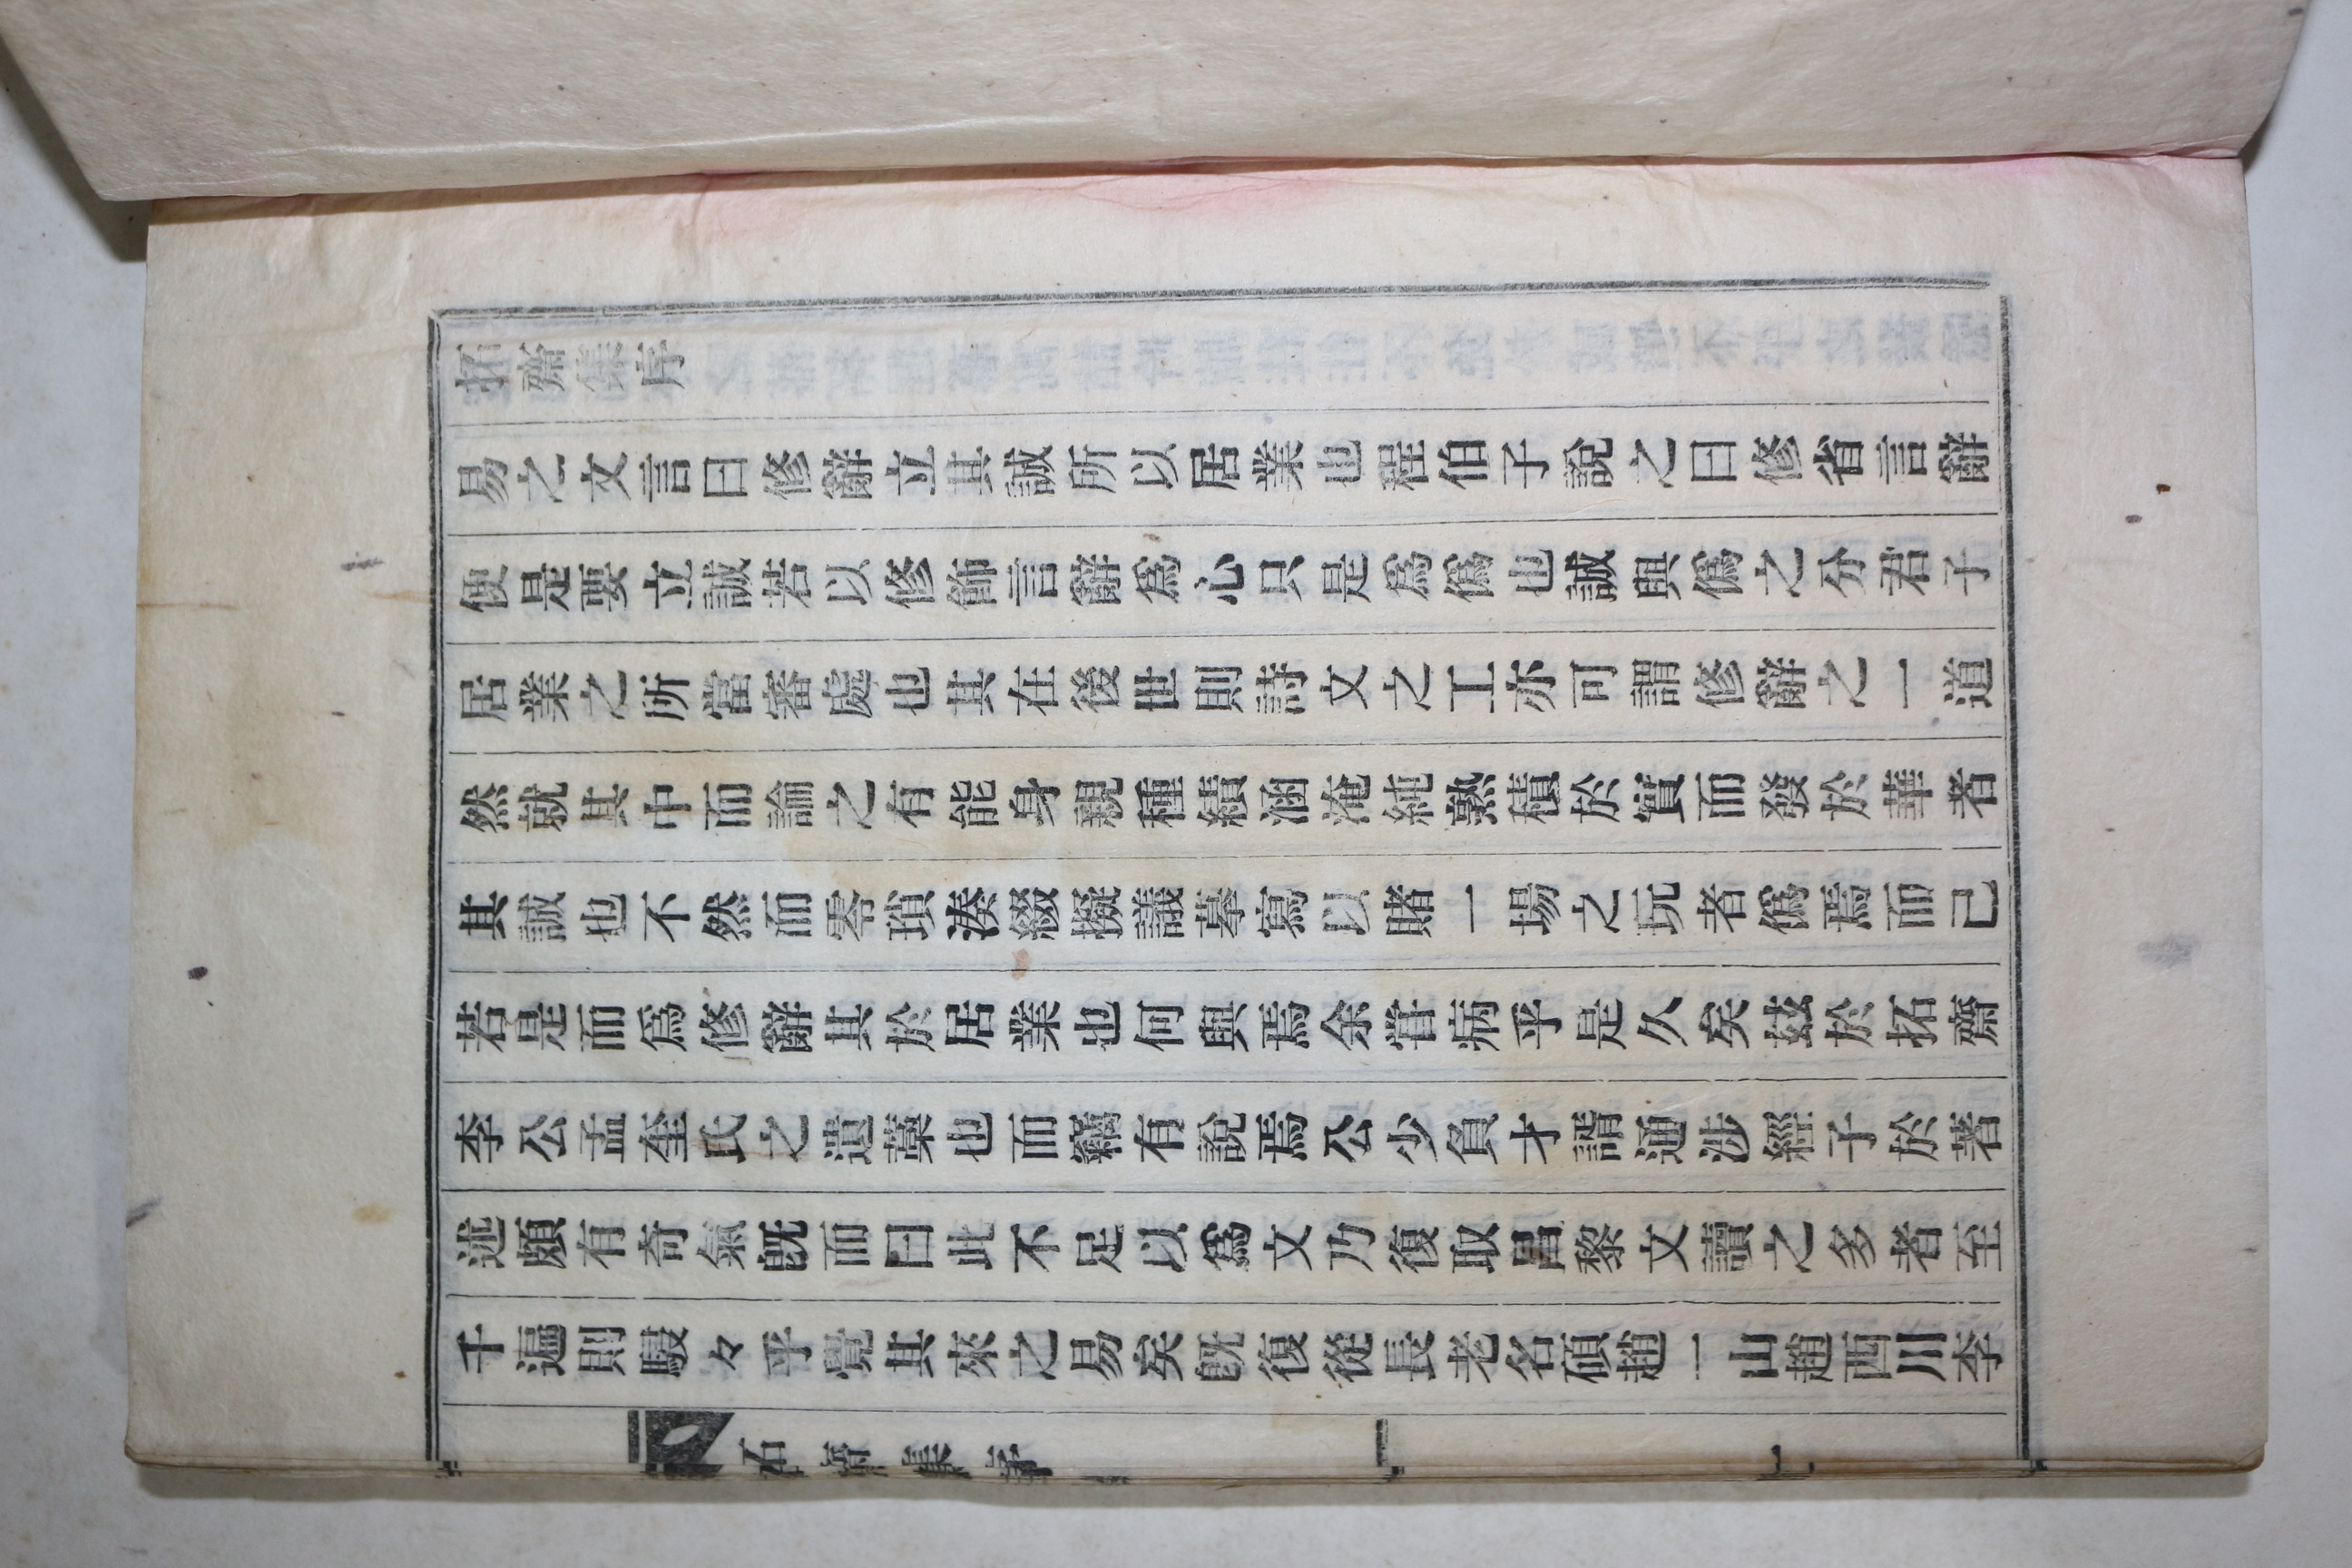 拓齋集序
易之文言曰修辭立其誠所以居業也程伯子說之曰修省言辭
便是要立誠若以修飾言辭爲心只是爲僞也誠與僞之分君子
居業之所當審處也其在後世則詩文之工亦可謂修辭之一道
然就其中而論之有能身親種績涵淹純熟積於實而發於華者
其誠也不然而零瑣湊綴擬議摹寫以賭一場之玩者僞焉而己
若是而爲修辭其於居業也何與焉余甞病乎是久矣玆於拓齋
李公孟奎氏之遺藁也而竊有說焉公少負才諝通涉經子於著
述頗有奇氣旣而曰此不足以爲文乃復取昌黎文讀之多者至
千遍則駸々乎覺其來之易矣旣復從長老名碩趙一山趙西川李
拓齋集序
一